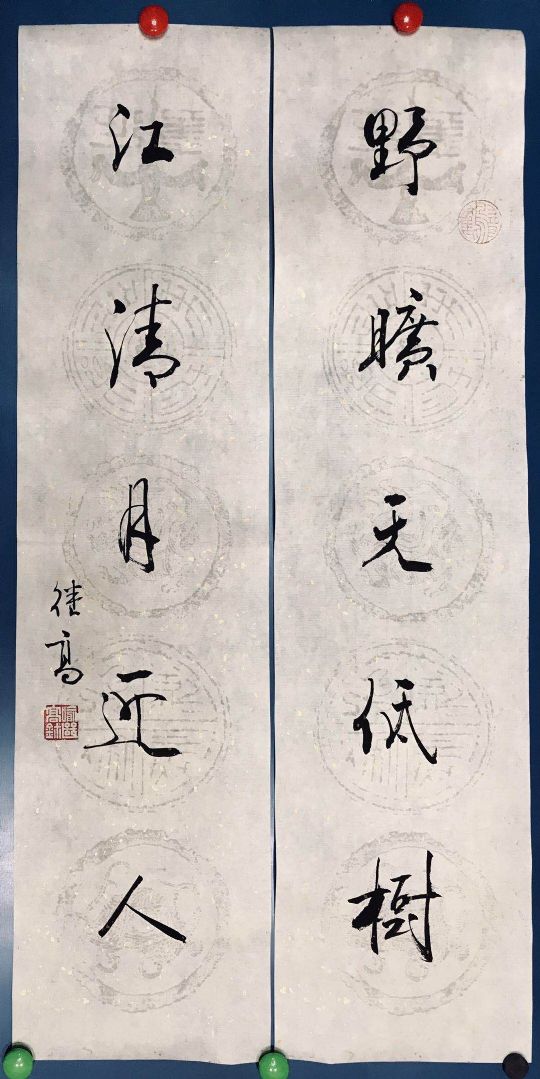 野曠天低樹
江清月近人
继高